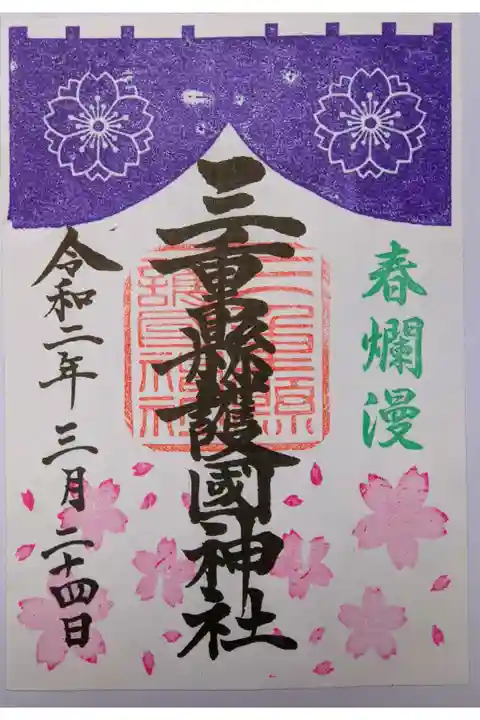 春爛漫
三重縣護國神社
令和二年三月二十四日